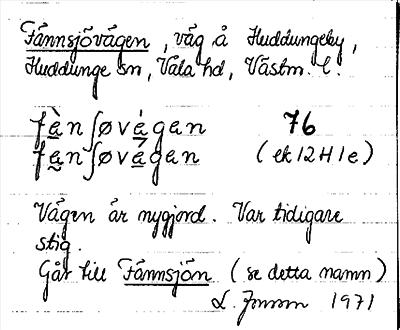 Fännsjövägen, väg å Huddungeby,
Huddunge sn, Vala hd, Västm. l.
fà̱nʃøvá̱gan 76
fa̱nʃøvá̱gan (ek 12H1e)
Vägen är nygjord. Var tidigare
stig.
Går till Fännsjön (se detta namn)
L. Jonson 1971